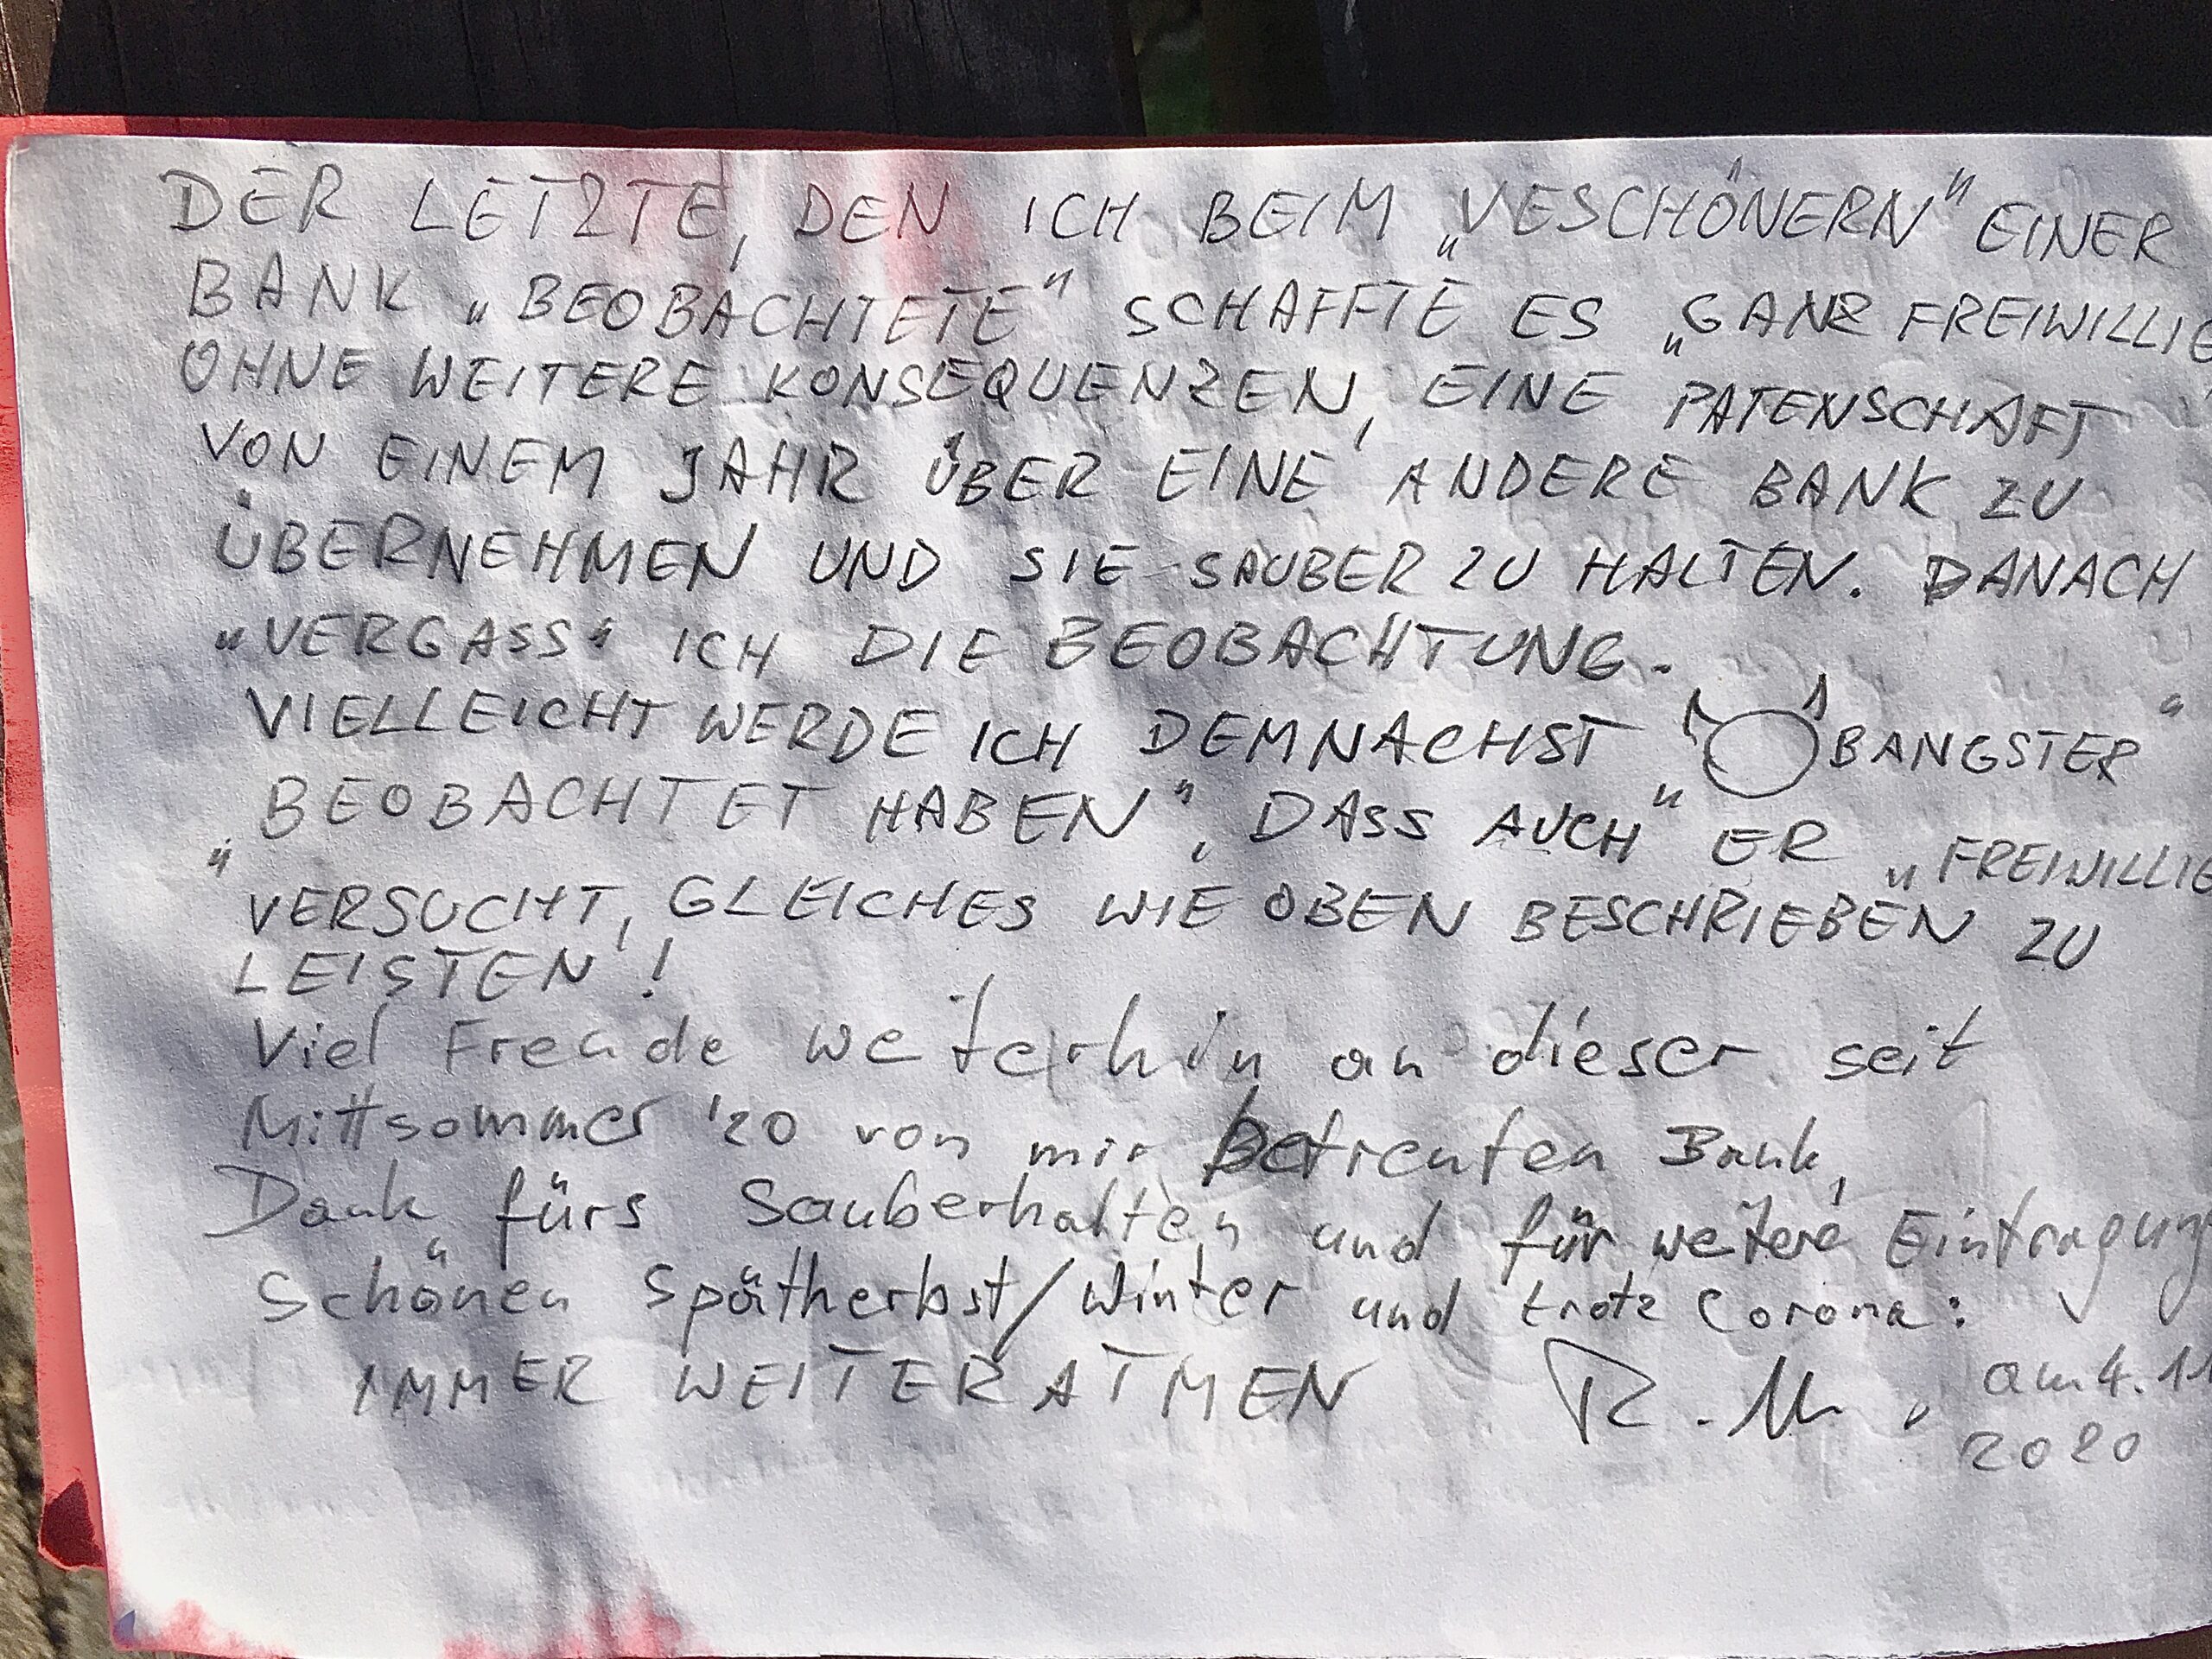 DER LETZTE, DEN ICH BEIM „VESCHÖNERN" EINER
BANK „BEOBACHTETE" SCHAFFTE ES „GANZ FREIWILLIG
OHNE WEITERE KONSEQUENZEN, EINE PATENSCHAFT
VON EINEM JAHR ÜBER EINE ANDERE BANK ZU
ÜBERNEHMEN UND SIE SAUBER ZU HALTEN. DANACH
„VERGASS" ICH DIE BEOBACHTUNG.
VIELLEICHT WERDE ICH DEMNACHST „BANGSTER"
BEOBACHTET HABEN", DASS AUCH" ER „FREIWILLIG
"VERSUCHT, GLEICHES WIE OBEN BESCHRIEBEN ZU
LEISTEN!
Viel Freude weiterhin an dieser seit
Mittsommer '20 von mir betreuten Bank,
Dank fürs Sauberhalten und für weitere Eintragung
Schönen Spätherbst/Winter und trotz Corona:
IMMER WEITER ATMEN am 4.11
2020